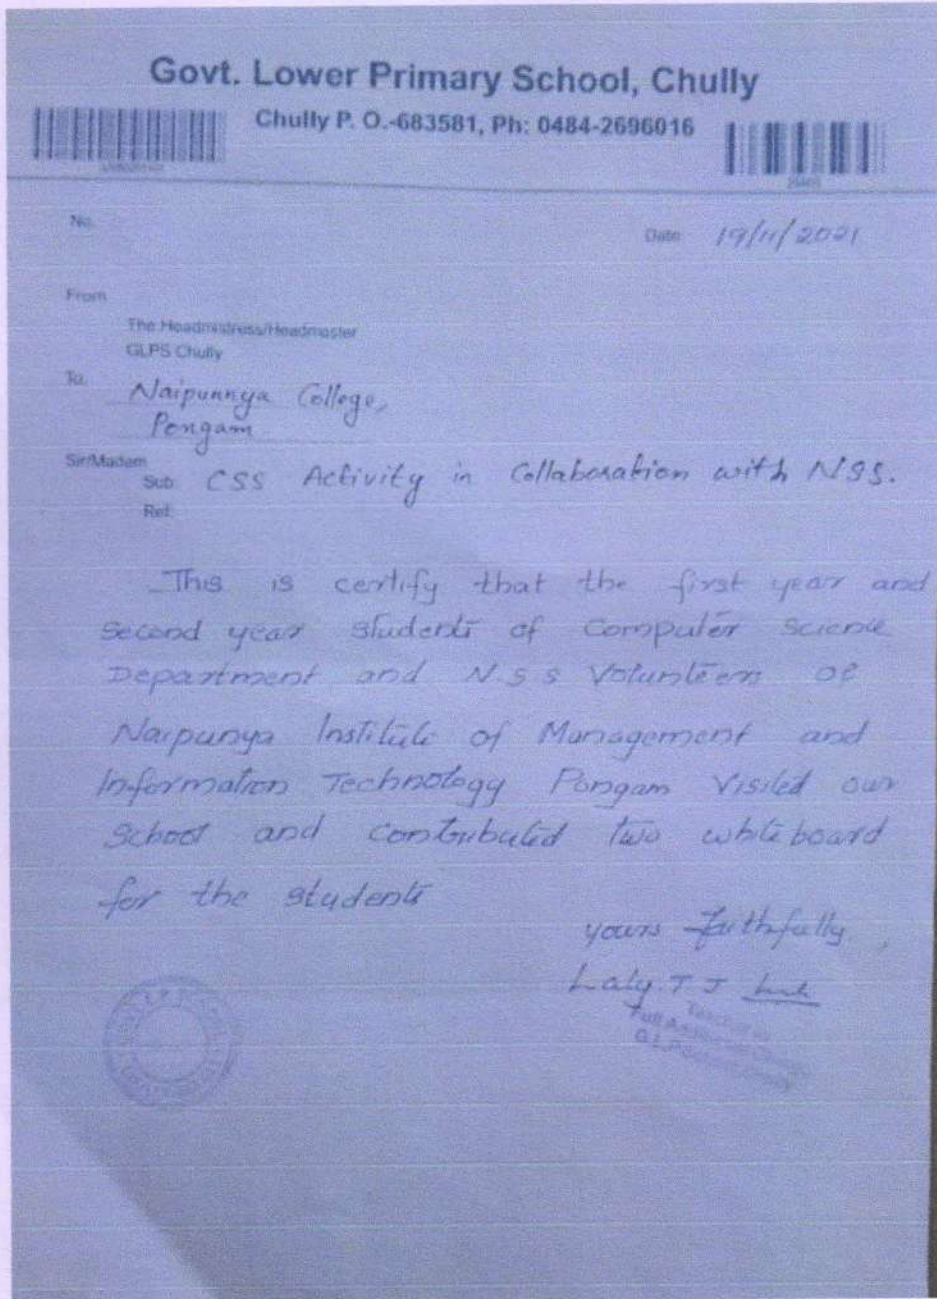 Govt. Lower Primary School, Chully
Chully P. O.-683581, Ph: 0484-2696016
No.
Date 19/11/2021
From
The Headmistress/Headmaster
GLPS Chully
To.
Naipunnya College,
Pongam
Sir/Madam
Sub: CSS Activity in Collaboration with NSS.
Ref:
This is certify that the first year and
second year students of Computer Science
Department and N.S.S Volunteers of
Naipunya Institute of Management and
Information Technology Pongam Visited our
School and contributed two whiteboard
for the students
yours faithfully,
Laly. T J
Teacher in
Full Additional Charge
G.L.P School, Chully